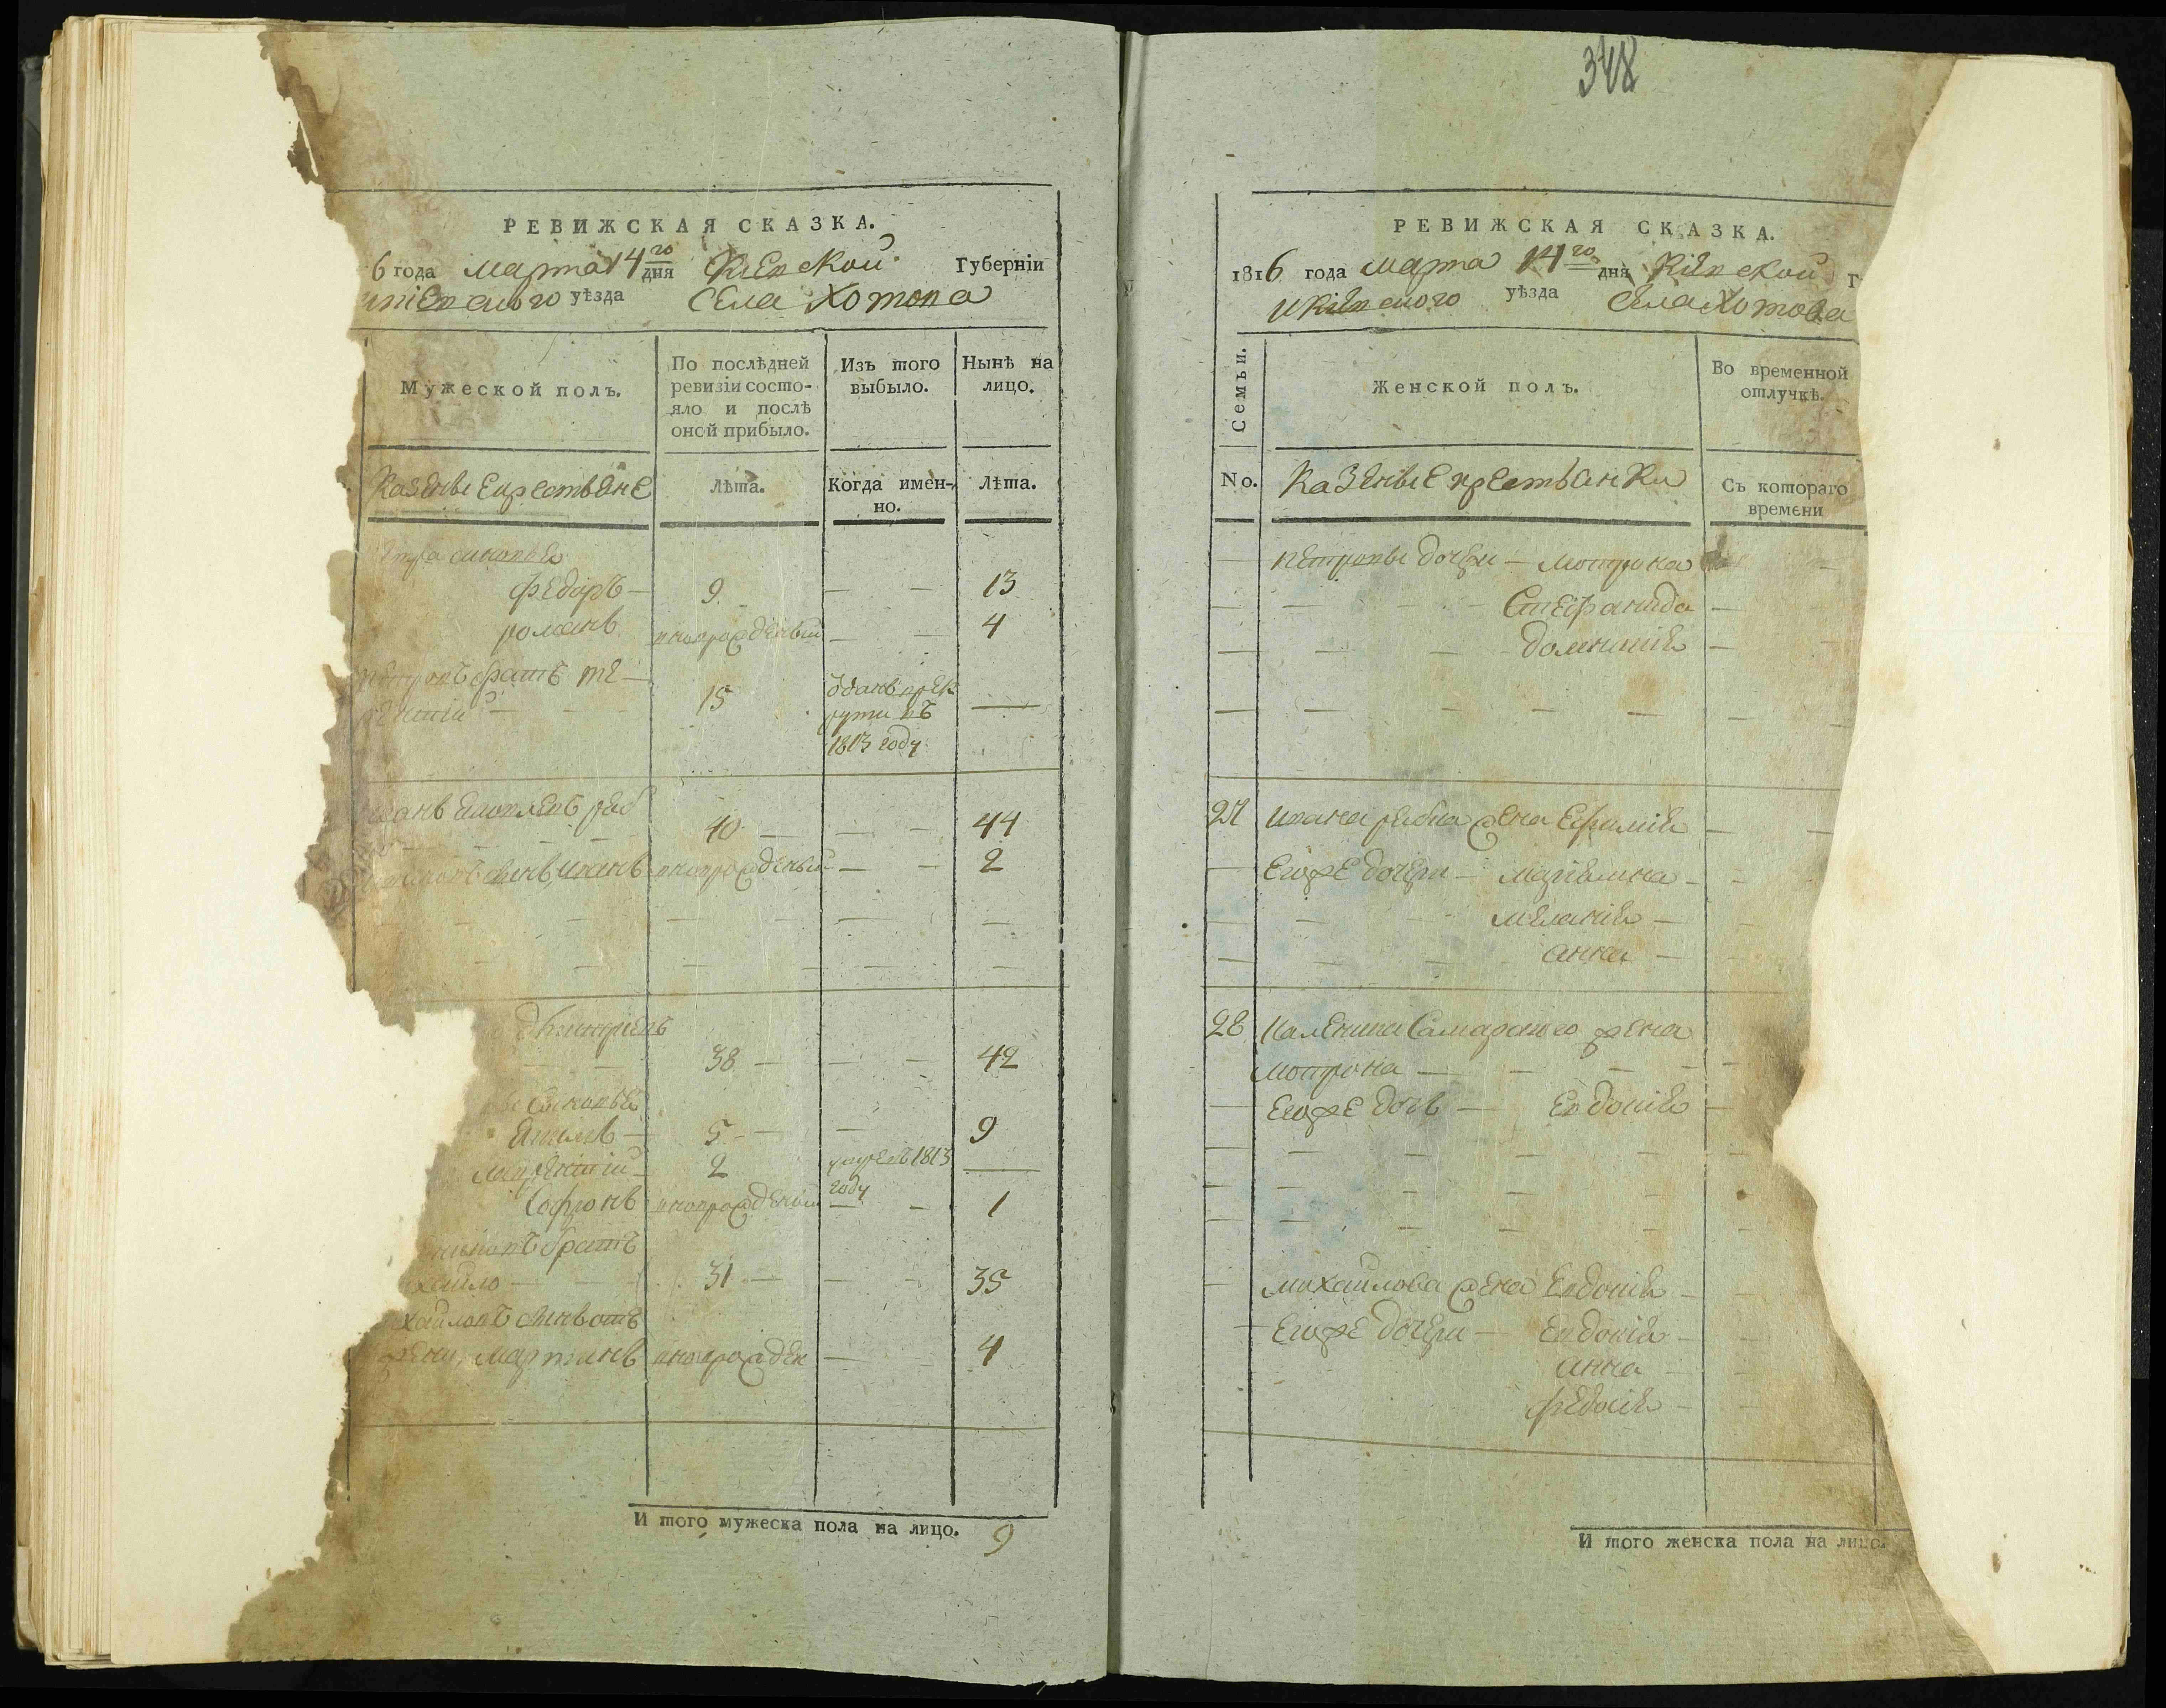 РЕВИЖСКАЯ СКАЗКА.
6 года марта 14го дня Киевской Губерніи
уѣзда Села Хотова
Мужеской полъ.
По послѣдней ревизіи состо-
яло и послѣ
оной прибыло.
Изъ того
выбыло.
Нынѣ на
лицо.
Казеные крестьяне
Лѣта.
Когда имен-
но.
Лѣта.
сыновья
Федоръ 9 13
романъ новорожденый 4
Петровъ братъ те-
рентій 15
отданъ врек
руты въ
1813 году
40 44
сынъ иванъ новорожденый 2
дмитріевъ
38 42
сыновья
5 9
2 умре въ 1813
году
Софронъ новорожденый 1
братъ
31 35
хайловъ сынъ отъ
жены, мартинъ новорожден 4
И того мужеска пола на лицо. 9
348
РЕВИЖСКАЯ СКАЗКА.
1816 года марта 14го дня Кіевской Г
Икіевского уѣзда Села Хотова
Семьи.
Женской полъ.
Во временной
отлучкѣ.
No.
Казеные крестьянки
Съ котораго
времени
петровы дочери мотрона
Стефанида
доминикія
27 ивана жена Ефимія
Егоже дочери марьянна
меланія
анна
28 Каленика Самарского жена
мотрона
Егоже дочь Евдокія
михайлова жена Евдокія
Егоже дочери Евдокія
анна
федосія
И того женска пола на лицо.